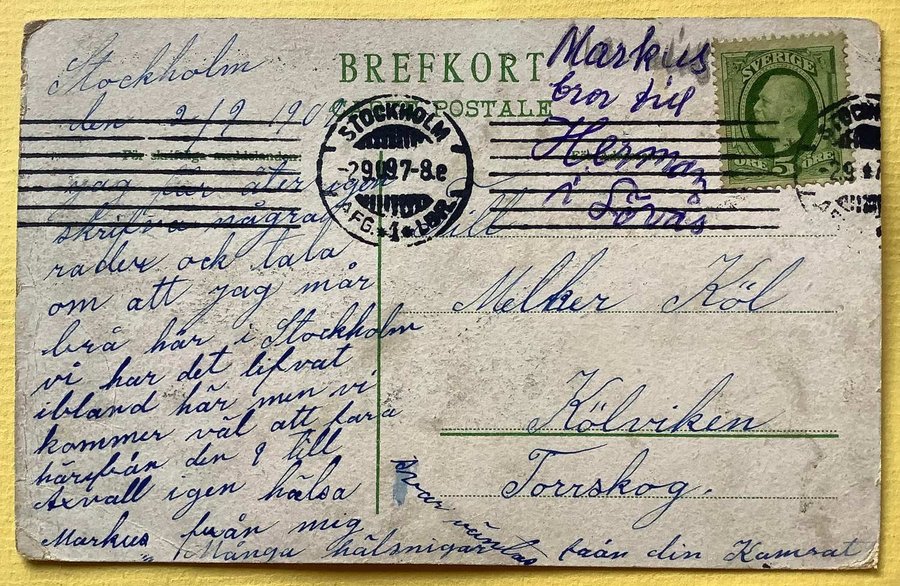 Stockholm
den 2/9 1909
BREFKORT
CARTE POSTALE
Markus
bror till
Herman
i Lövås
SVERIGE
5
ÖRE ÖRE
STOCKHOLM
-2.9.09.7-8e
AFG. *1* LBR.
STOCKHOLM
-2.9
För skriftliga meddelanden:
jag får åter igen
skrifva några
rader ock tala
om att jag mår
brå här i Stockholm
vi har det lifvat
ibland här men vi
kommer väl att fara
härifrån den 9 till
Axvall igen hälsa
Markus från mig
Många hälsnigar från din Kamrat
Svar väntas
Till
Melker Köl
Kölviken
Torrskog.